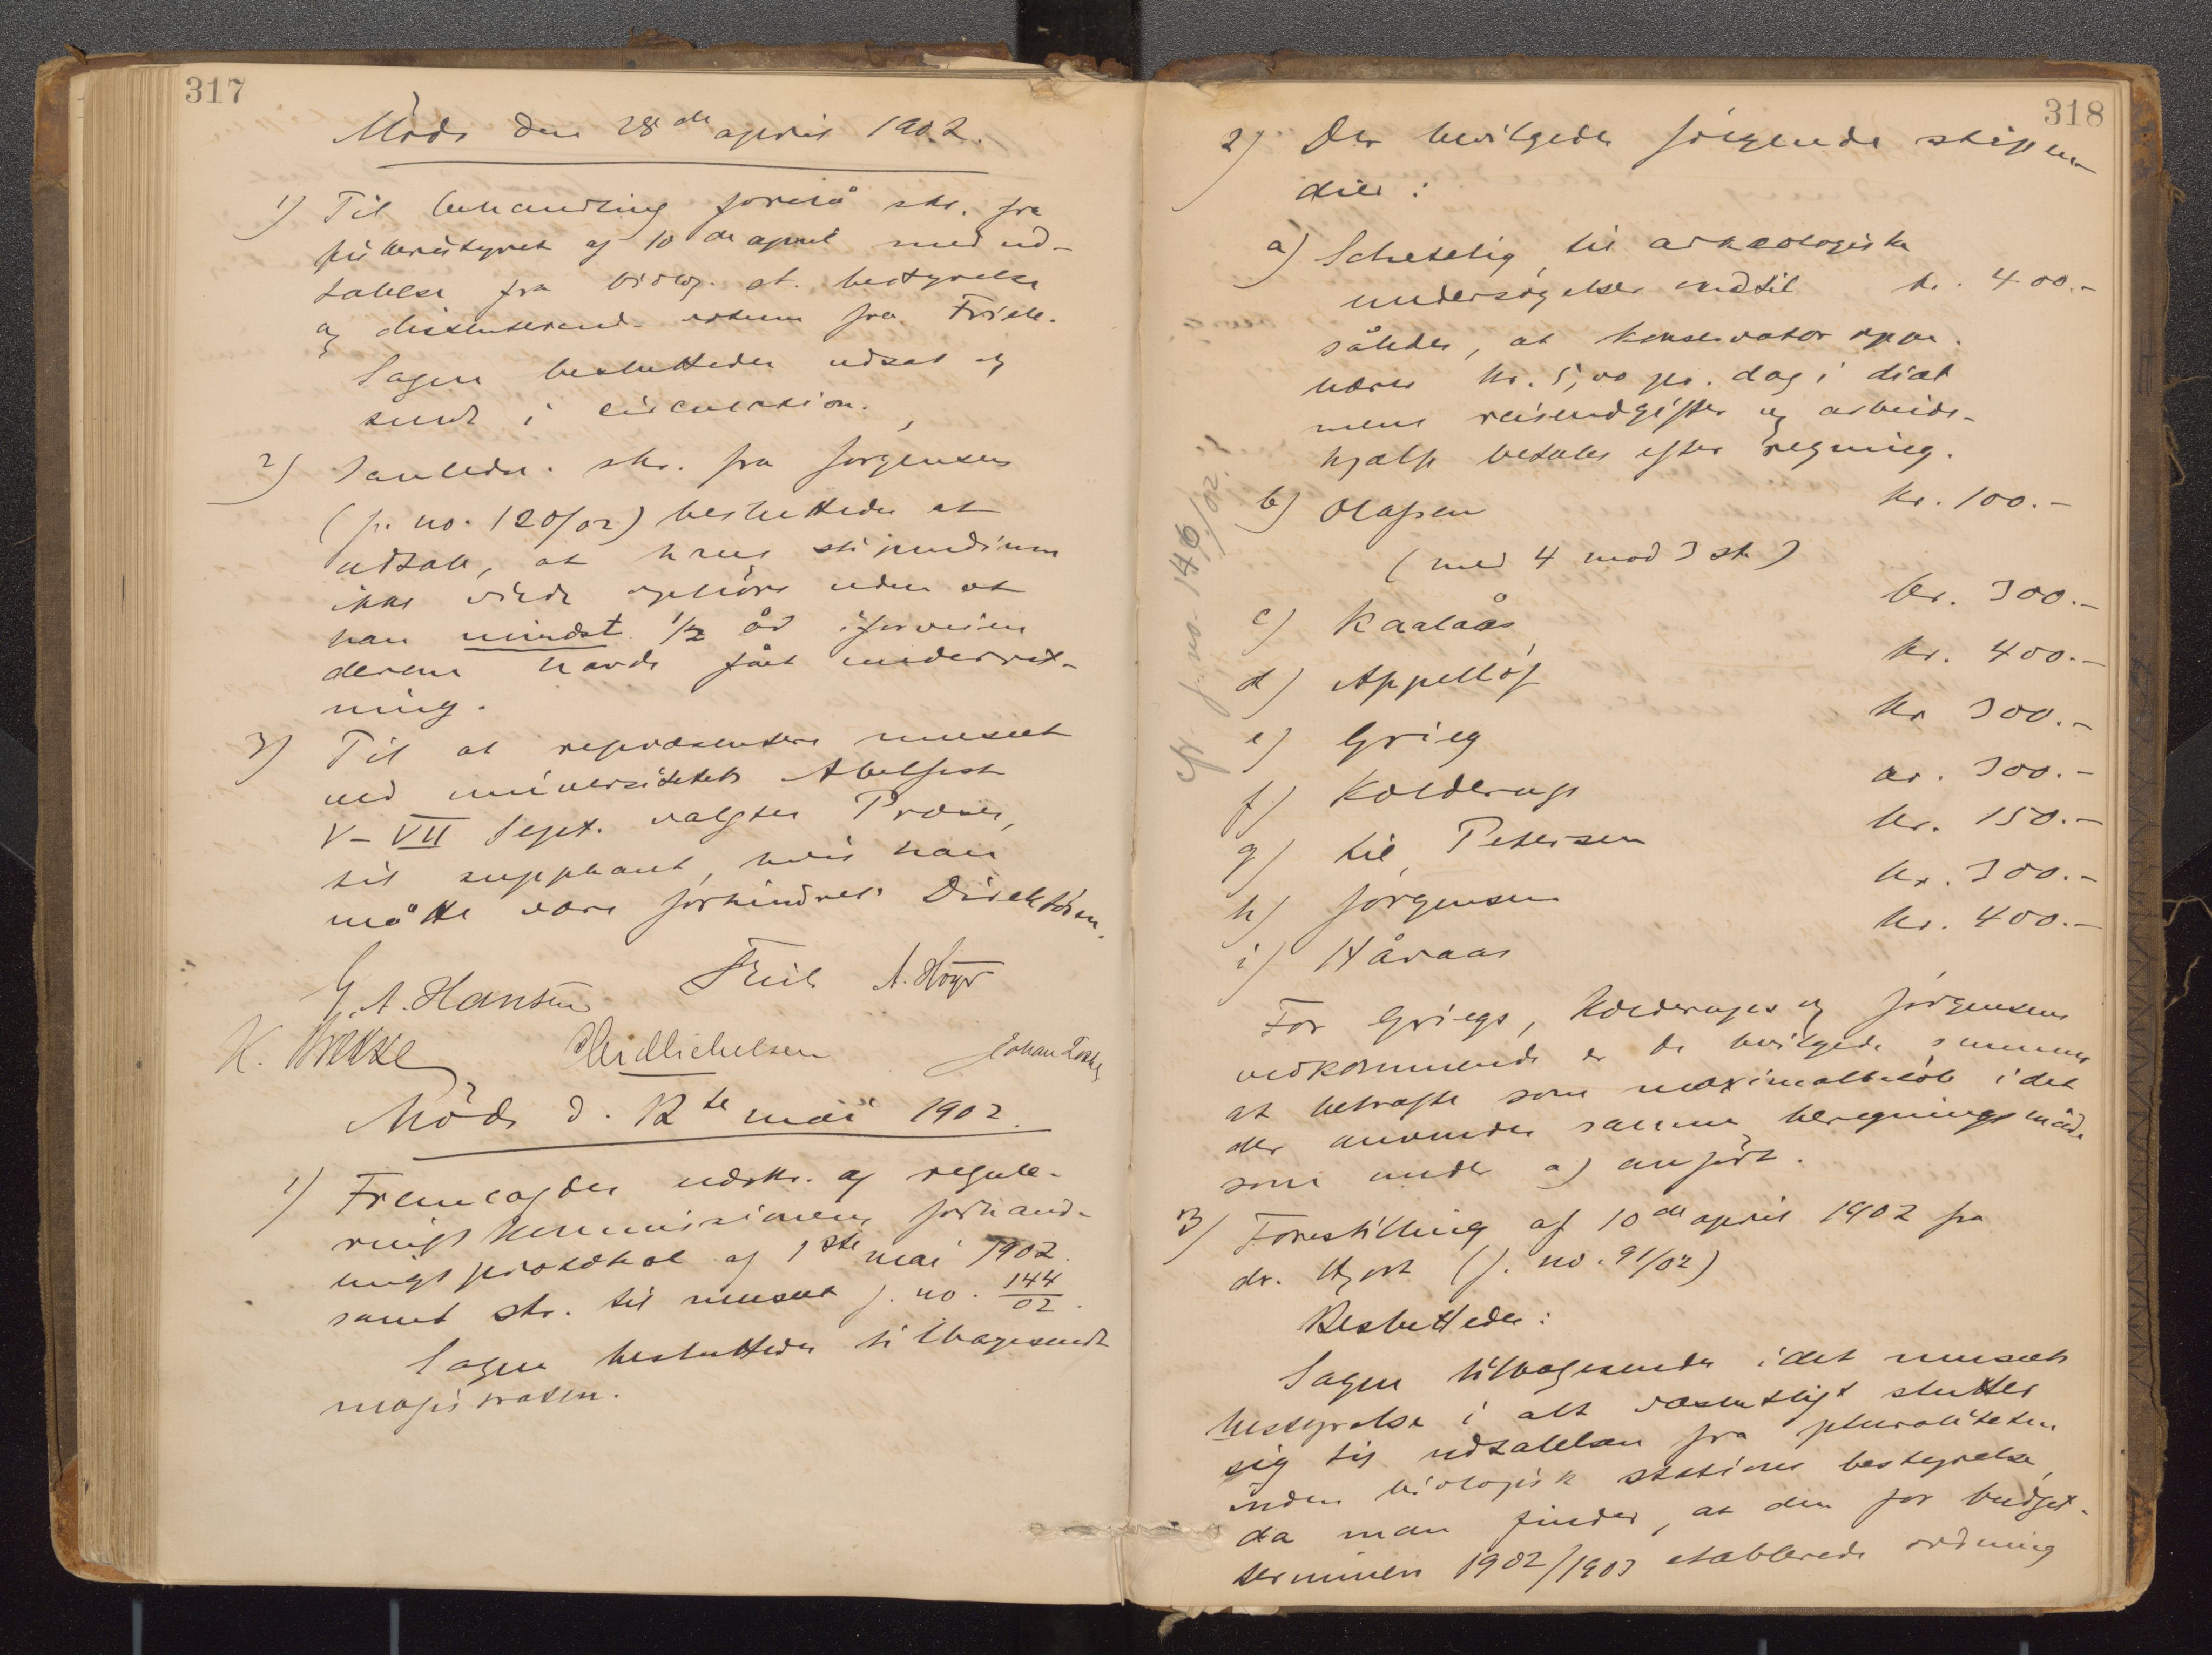 317
Møde den 28de april 1902.
1) Til behandling forelå skr. fra
fiskeristyret af 10de april med ud-
talelse fra biolog. st. bestyrelse
og dissenterende votum fra Friele.
Sagen besluttedes udsat og
sendt i cirkulation.
2) I anledn. skr. fra Jørgensen
(j. no. 120/02) besluttedes at
udtale, at hans stipendium
ikke vilde ophøre uden at
han mindst 1/2 år iforveien
derom havde fået underret-
ning.
3) Til at repræsentere museet
ved universitetets Abelfest
V–VII Sept. valgtes Præses,
til suppleant, hvis han
måtte være forhindret Direktøren.
G. A. Hansen Friele A. Høyer
K. Brekke Chr Michelsen Johan
Møde d. 12te mai 1902.
1) Fremlagdes udskr. af regule-
ringskommissionens forhand-
lingsprotokol af 1ste mai 1902.
samt skr. til museet j. no. 144/02.
Sagen besluttedes tilbagesendt
magistraten.
318
2) Der bevilgedes følgende stipen-
dier:
a) Schetelig, til arkæologiske
undersøgelser indtil kr. 400.-
således, at konservator oppe-
bærer kr. 5,00 pr. dag i diæt
mens reiseudgifter og arbeids-
hjælp betales efter regning.
b) Olafsen kr. 100.-
(med 4 mod 3 st)
c) Kaalaas kr. 300.-
d) Appelløf kr. 400.-
e) Grieg kr 300.-
f) Kolderup kr. 300.-
g) til Petersen kr. 150.-
h) Jørgensen kr. 300.-
i) Håvaas kr. 400.-
cfr. j. no. 146/02.
For Griegs, Kolderups og Jørgensens
vedkommende er de bevilgede summer
at betragte som maximalbeløb idet
der anvendes samme beregningsmåde
som under a) anført.
3) Forestilling af 10de april 1902 fra
dr. Hjort (j. no. 91/02)
Besluttedes:
Sagen tilbagesendes idet museets
bestyrelse i alt væsentligt slutter
sig til udtalelsen fra pluraliteten
inden biologisk stations bestyrelse,
da man finder, at den for budget-
terminen 1902/1903 etablerede ordning